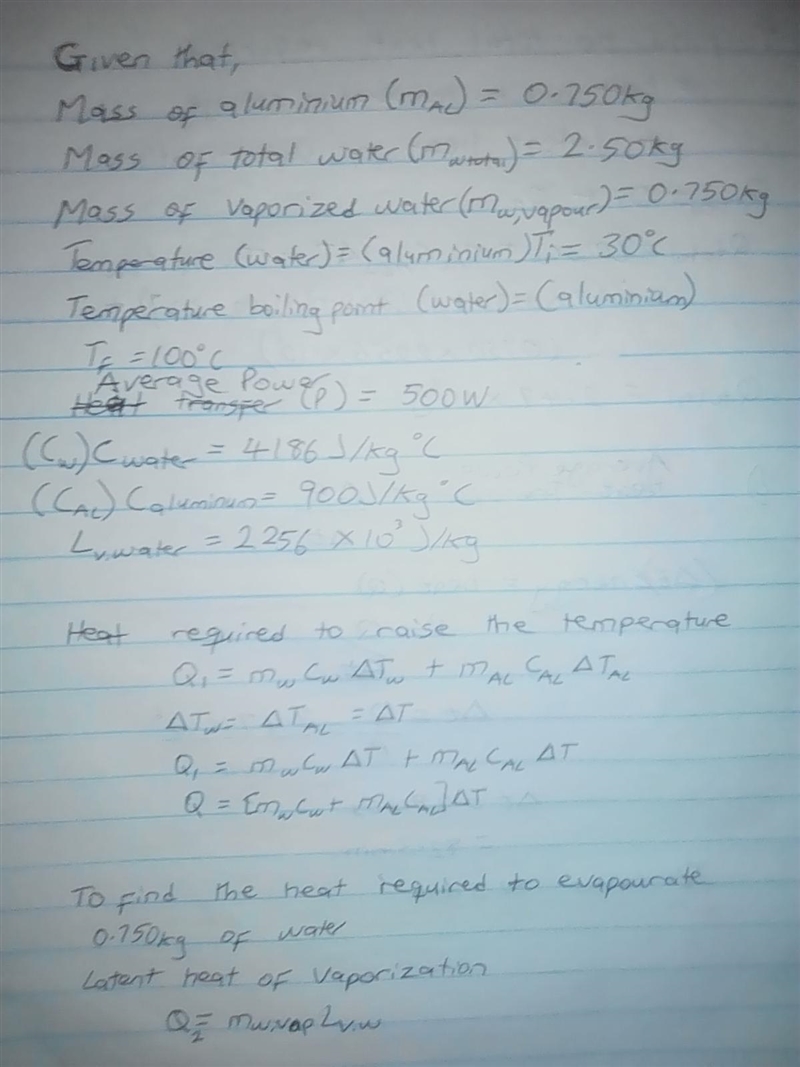 Given that,
Mass of aluminium (m_AL) = 0.750kg
Mass of total water (m_wtotal) = 2.50kg
Mass of vaporized water (m_w,vapour) = 0.750kg
Temperature (water) = (aluminium) Ti = 30°C
Temperature boiling point (water) = (aluminium)
T_F = 100°C
Average Power
Heat transfer (P) = 500W
(C_w) C_water = 4186 J/kg °C
(C_AL) C_aluminum = 900 J/kg °C
L_v,water = 2256 × 10³ J/kg
Heat required to raise the temperature
Q₁ = m_w C_w ΔT_w + m_AL C_AL ΔT_AL
ΔT_w = ΔT_AL = ΔT
Q₁ = m_w C_w ΔT + m_AL C_AL ΔT
Q = [m_w C_w + m_AL C_AL] ΔT
To find the heat required to evapourate
0.750kg of water
Latent heat of vaporization
Q₂ = m_w,vap L_v,w